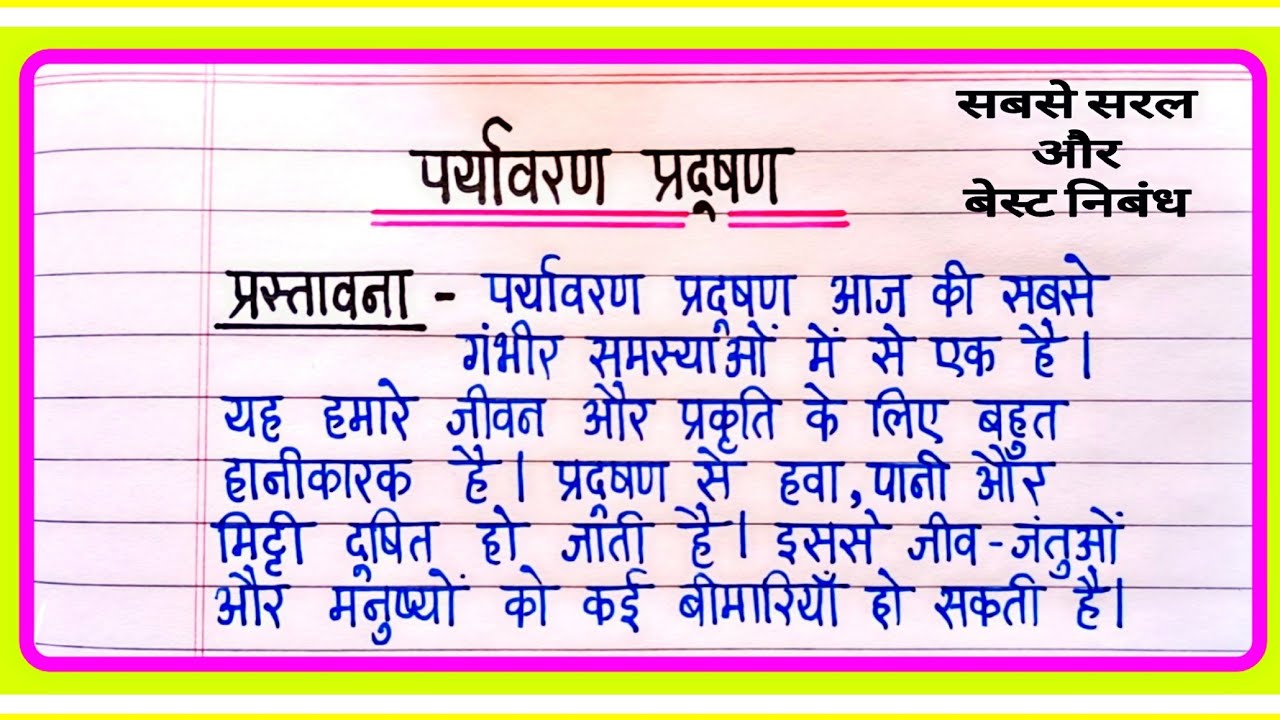 सबसे सरल
और
बेस्ट निबंध
पर्यावरण प्रदूषण
प्रस्तावना - पर्यावरण प्रदूषण आज की सबसे
गंभीर समस्याओं में से एक है।
यह हमारे जीवन और प्रकृति के लिए बहुत
हानीकारक है। प्रदूषण से हवा, पानी और
मिट्टी दूषित हो जाती है। इससे जीव-जंतुओं
और मनुष्यों को कई बीमारियाँ हो सकती है।